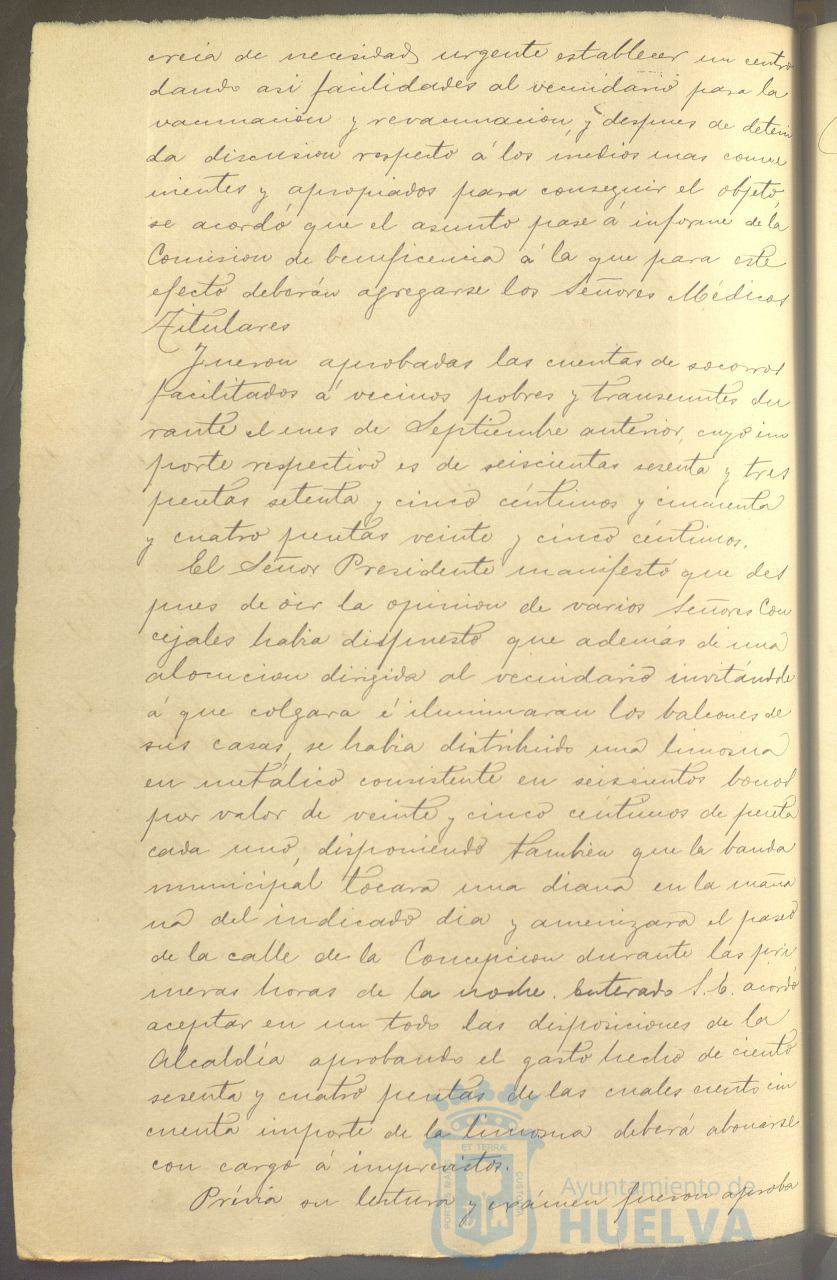 creia de necesidad urgente establecer un centro
dando asi facilidades al vecindario para la
vacunacion y revacunacion, y despues de deteni
da discusion respecto á los medios mas conve
nientes y apropiados para conseguir el objeto,
se acordó que el asunto pase á informe de la
Comision de beneficencia á la que para este
efecto deberán agregarse los Señores Médicos
Titulares
Fueron aprobadas las cuentas de socorros
facilitados á vecinos pobres y transeuntes du
rante el mes de Septiembre anterior, cuyo im
porte respectivo es de seiscientas sesenta y tres
pesetas setenta y cinco céntimos y cincuenta
y cuatro pesetas veinte y cinco céntimos.
El Señor Presidente manifestó que des
pues de oir la opinion de varios Señores Con
cejales habia dispuesto que además de una
alocucion dirigida al vecindario invitándole
á que colgara é iluminaran los balcones de
sus casas, se habia distribuido una limosna
en metálico consistente en seiscientos bonos
por valor de veinte y cinco céntimos de peseta
cada uno, disponiendo tambien que la banda
municipal tocara una diana en la maña
na del indicado dia y amenizara el paseo
de la calle de la Concepcion durante las pri
meras horas de la noche. Enterado S. E. acordó
aceptar en un todo las disposiciones de la
Alcaldía aprobando el gasto hecho de ciento
sesenta y cuatro pesetas de las cuales ciento cin
cuenta importe de la limosna deberá abonarse
con cargo á imprevistos.
Prévia su lectura y exámen fueron aproba
PORTUS MARIS ET TERRÆ CUSTODIA
Ayuntamiento de
HUELVA